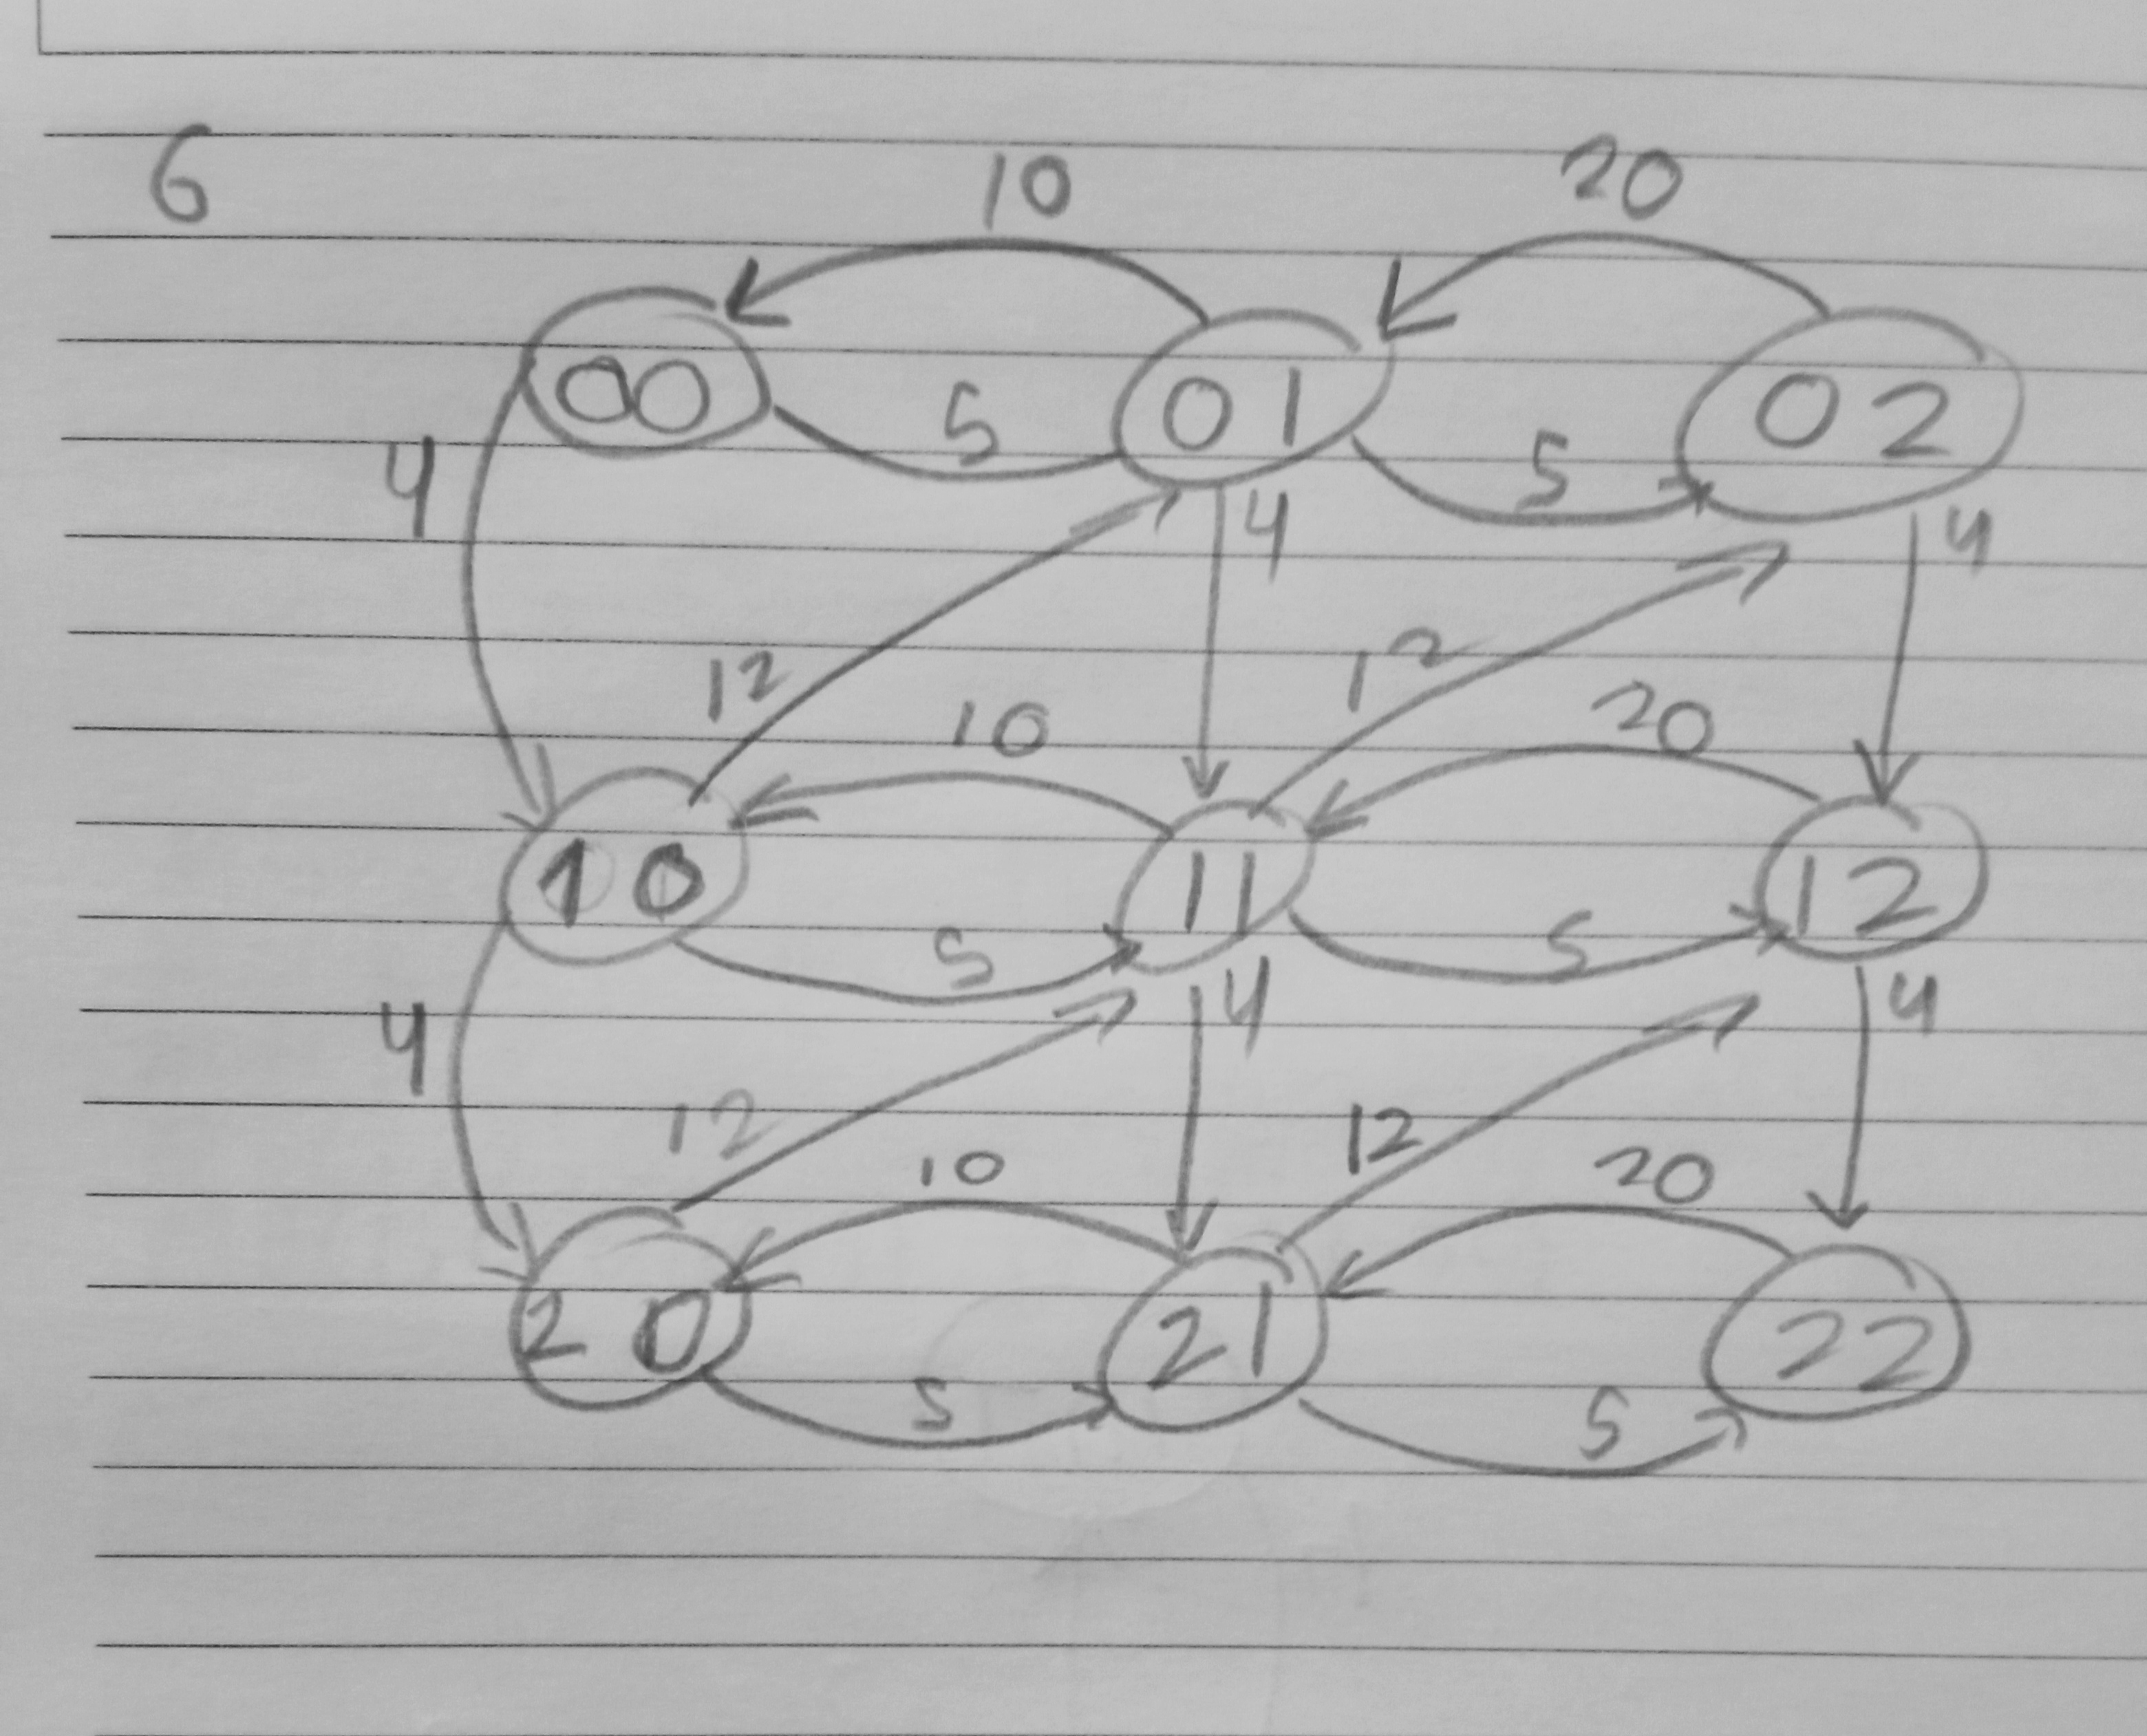 6 10 20
00 5 01 5 02
4 4 4
12 12
10 20
10 11 12
5 5
4 4 4
12 12
10 20
20 21 22
5 5